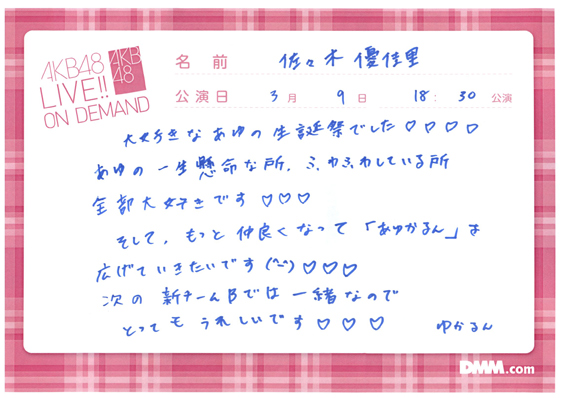 AKB48
LIVE!!
ON DEMAND
AKB
48
名前 佐々木優佳里
公演日 3月 9日 18:30 公演
大好きなあゆの生誕祭でした♡♡♡♡
あゆの一生懸命な所、ふわふわしている所
全部大好きです♡♡♡
そして、もっと仲良くなって「あゆかるん」は
広げていきたいです(^-^)♡♡♡
次の新チームBでは一緒なので
とってもうれしいです♡♡♡ ゆかるん
DMM.com